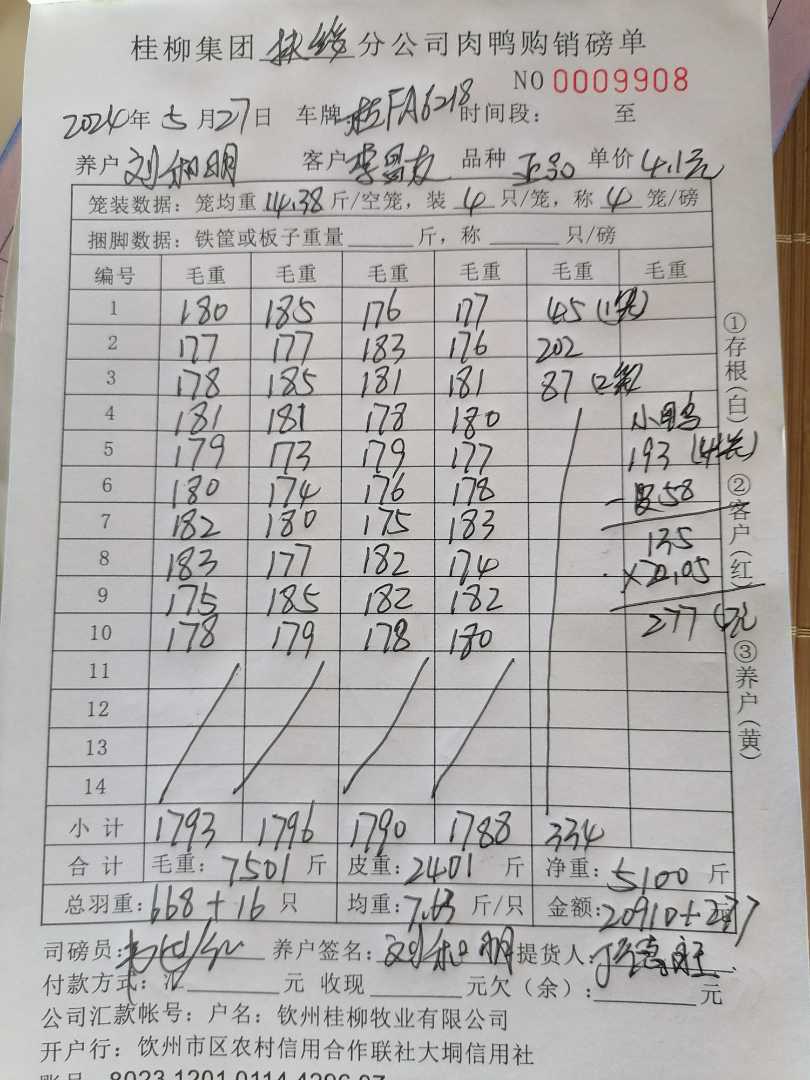 桂柳集团扶绥分公司肉鸭购销磅单
NO 0009908
2024年5月27日 车牌桂FA6218 时间段： 至
养户 刘和明 客户 李 友 品种 单价 4.1元
笼装数据：笼均重14.38斤/空笼，装4只/笼，称4笼/磅
捆脚数据：铁筐或板子重量______斤，称______只/磅
编号 毛重 毛重 毛重 毛重 毛重 毛重
1 180 185 176 177 45
2 177 177 183 176 202
3 178 185 181 181 87
4 181 181 178 180 小鸭
5 179 173 179 177 193
6 180 174 176 178 58
7 182 180 175 183 135
8 183 177 182 174 2.05
9 175 185 182 182 277
10 178 179 178 180
11
12
13
14
小计 1793 1796 1790 1788 334
合计 毛重：7501斤 皮重：2401斤 净重：5100斤
总羽重：668+16只 均重：7.63斤/只 金额：20910+277
司磅员： 养户签名：刘和明 提货人：
付款方式：汇______元 收现______元欠（余）：______元
公司汇款帐号：户名：钦州桂柳牧业有限公司
开户行：钦州市区农村信用合作联社大垌信用社
①存根（白）②客户（红）③养户（黄）